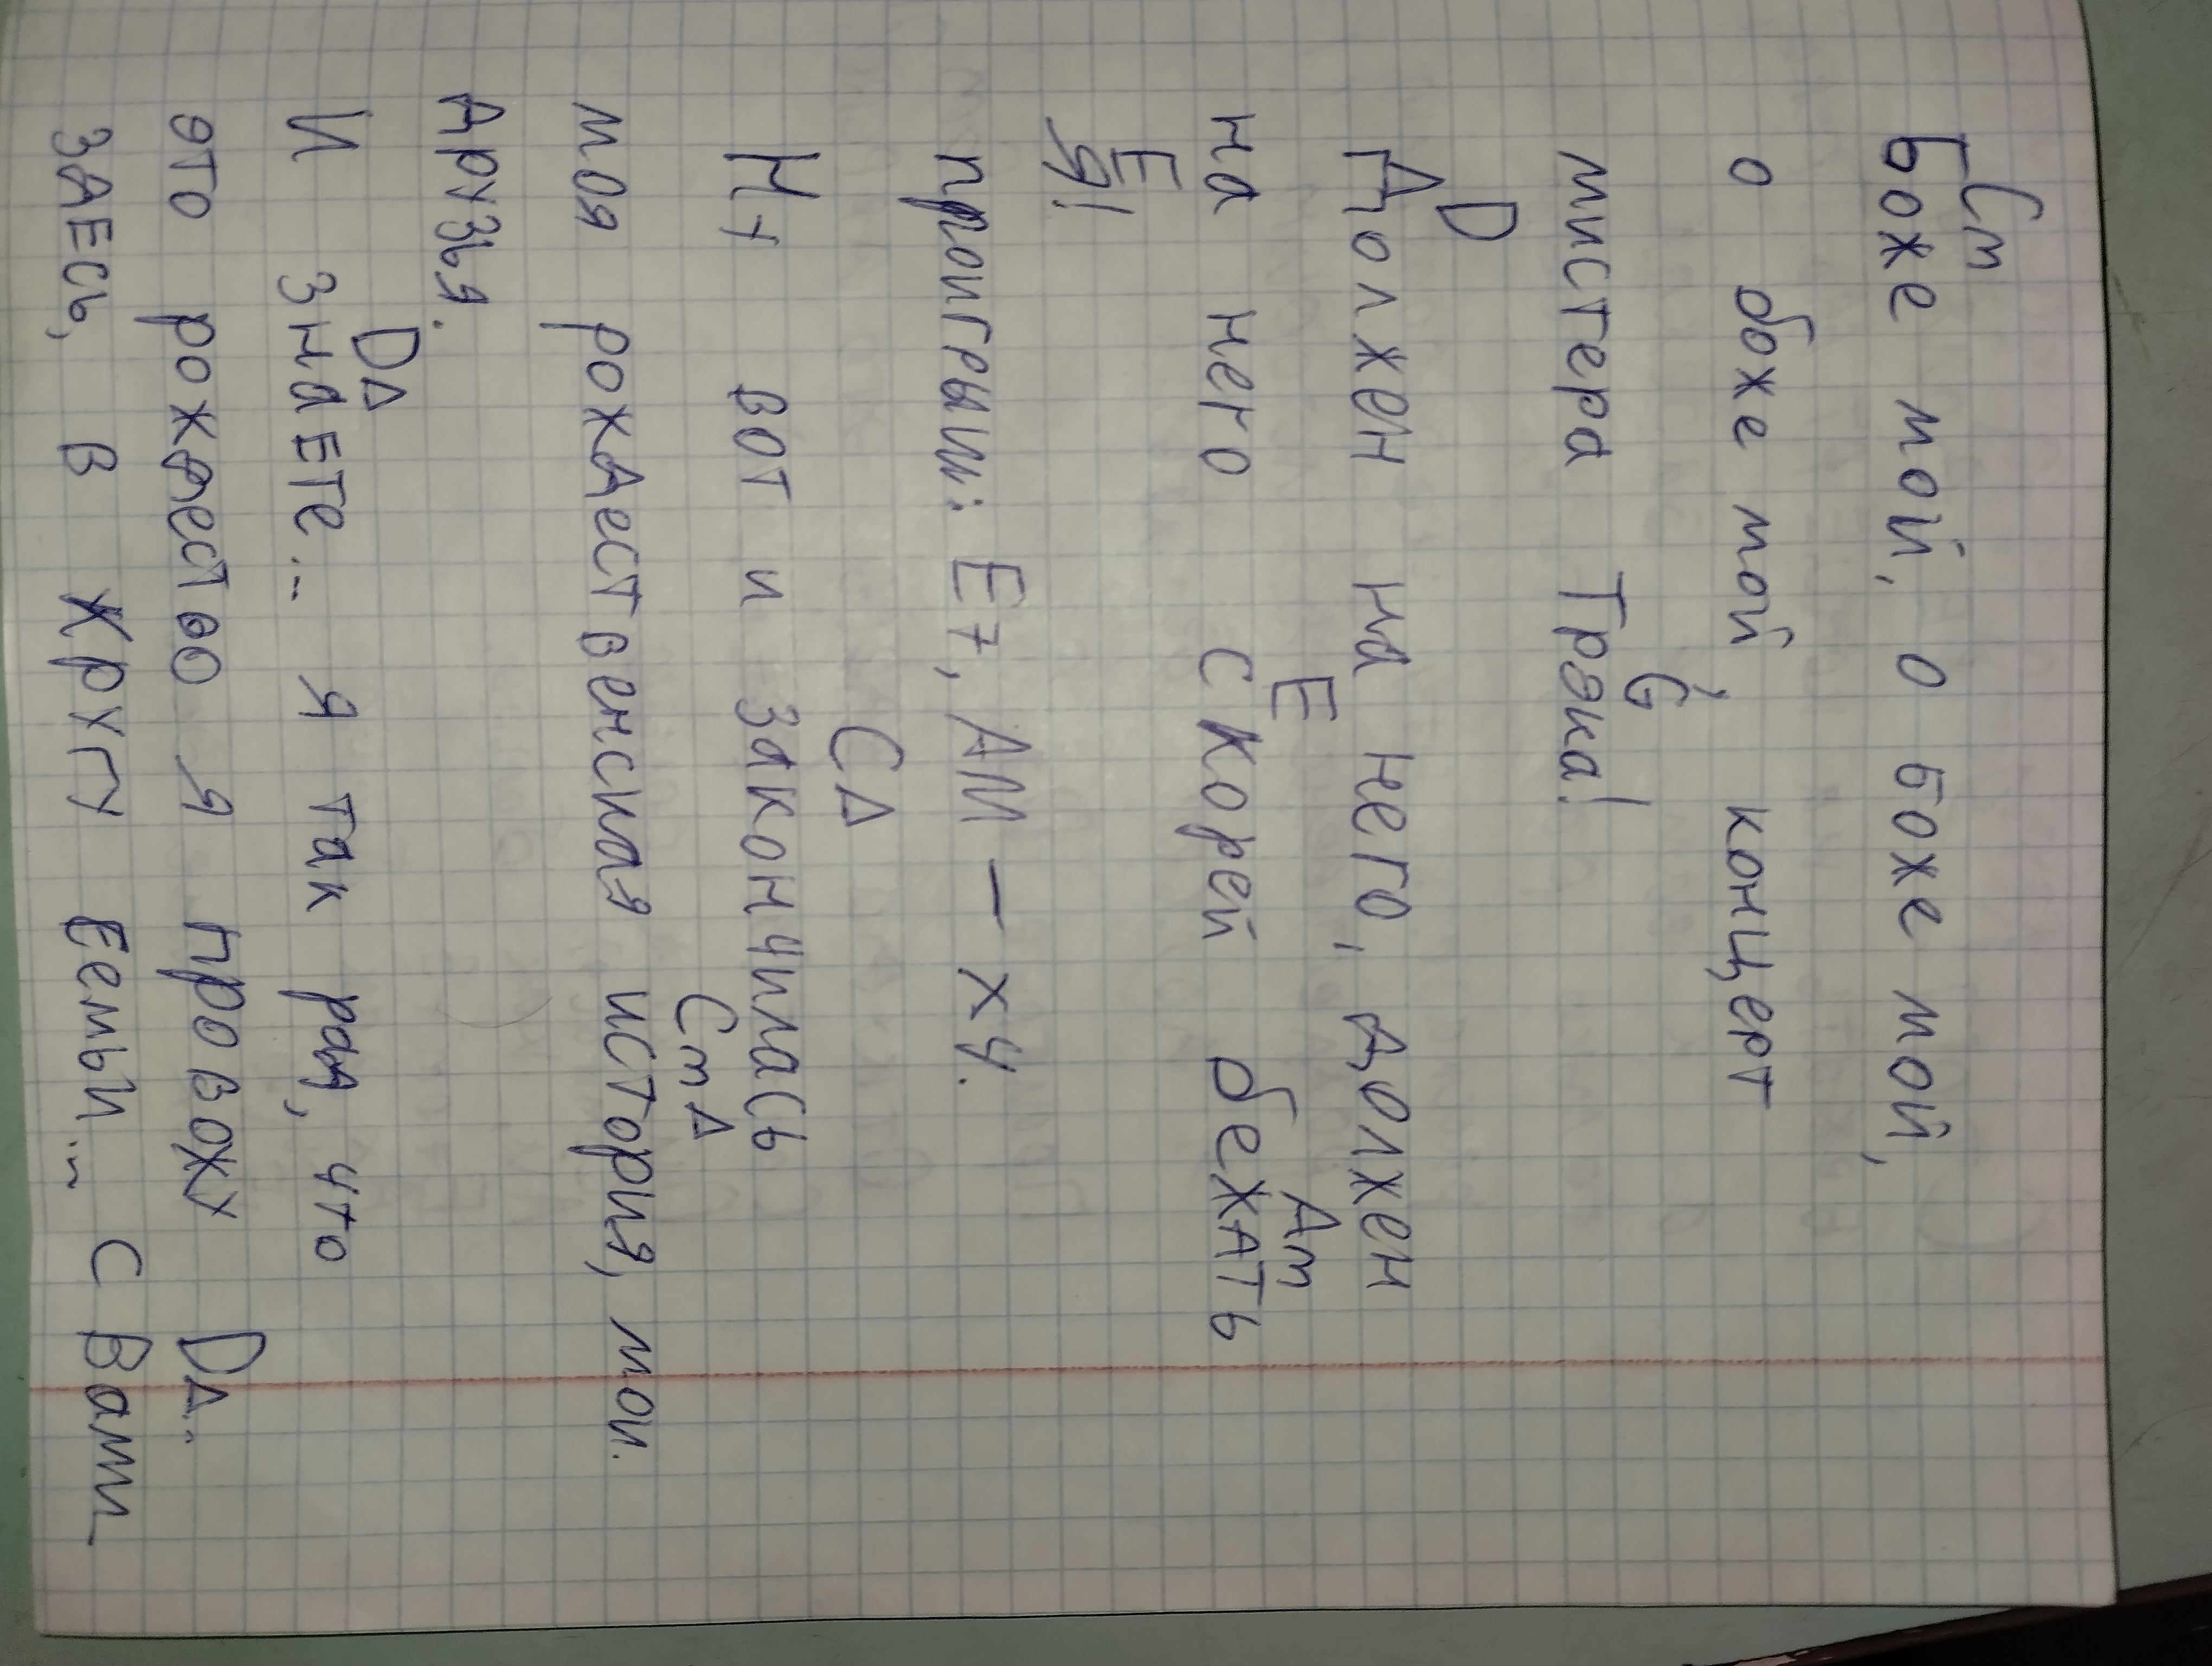 Cm
Боже мой, о боже мой,
о боже мой, концерт
G
мистера Трэка!
D
Должен на него, должен
E Am
на него скорей бежать
E
я!
проигрыш: E7, Am — x4.
CΔ
Ну вот и закончилась
CmΔ
моя рождественская история, мои
друзья.
DΔ
И знаете... я так рад, что
это рождество я провожу DΔ..
здесь, в кругу семьи... с вами